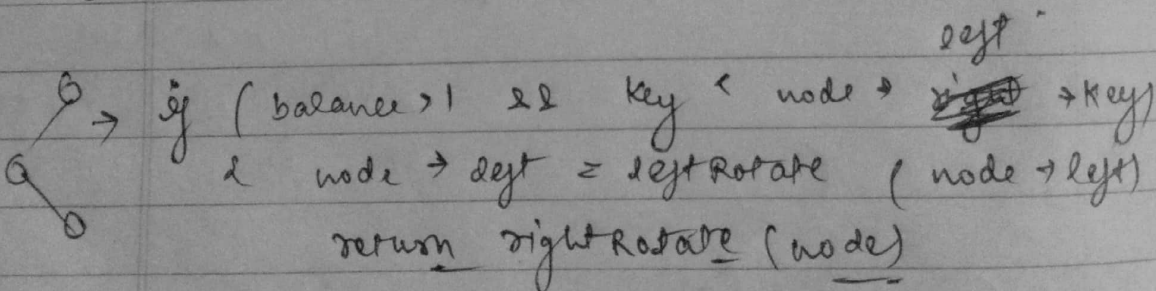 left
→ if (balance > 1 && key < node → → key)
{ node → left = leftRotate (node → left)
return rightRotate (node)